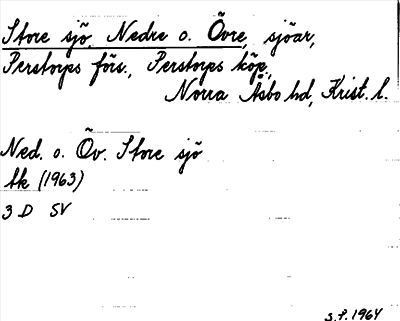 Store sjö. Nedre o. Övre, sjöar,
Perstorps förs., Perstorps köp.,
Norra Åsbo hd, Krist. l.
Ned. o. Öv. Store sjö
tk (1963)
3 D SV
S.f. 1964